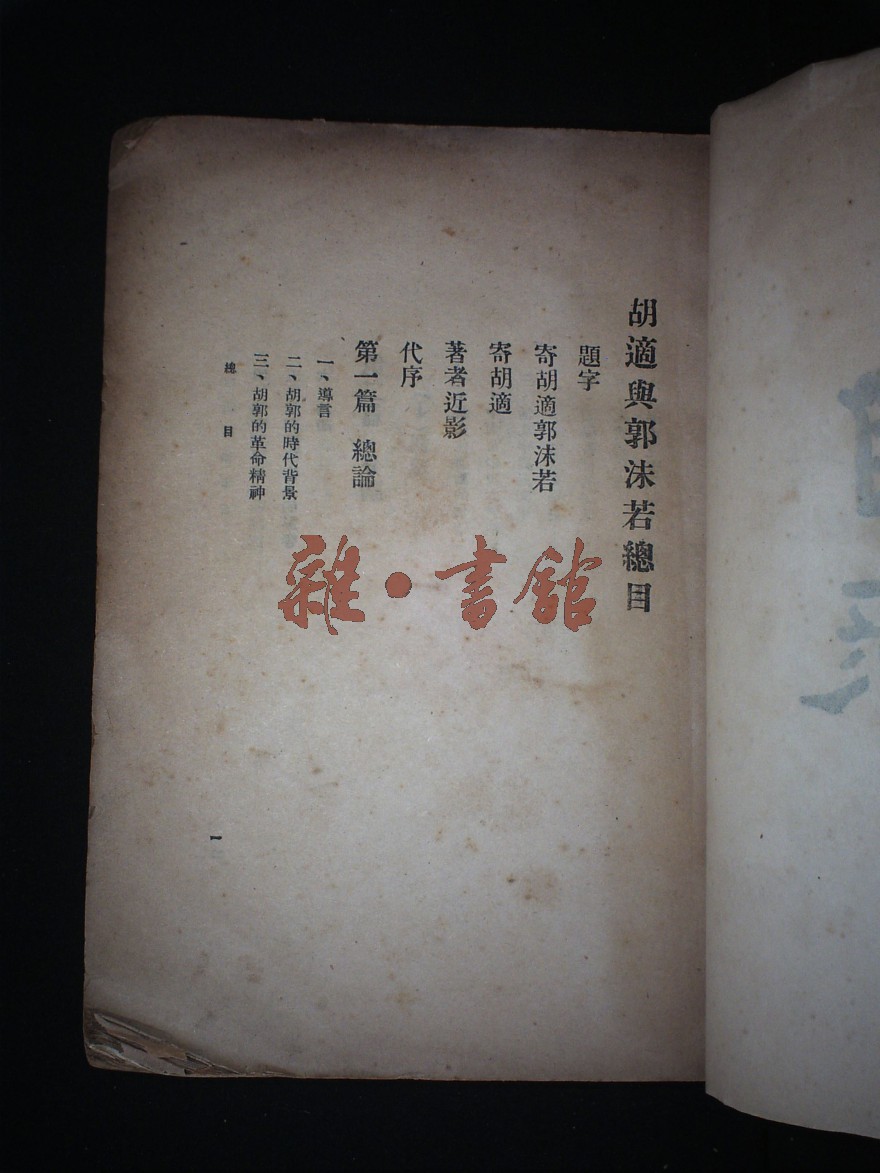 胡適與郭沫若總目
題字
寄胡適郭沫若
寄胡適
著者近影
代序
第一篇 總論
一、導言
二、胡郭的時代背景
三、胡郭的革命精神
總目
一
雜·書館